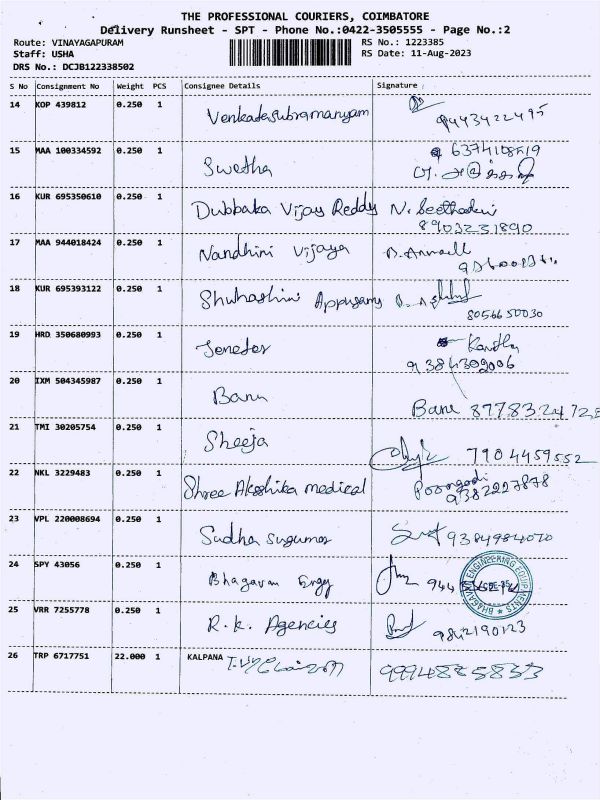 THE PROFESSIONAL COURIERS, COIMBATORE
Delivery Runsheet - SPT - Phone No.:0422-3505555 - Page No.:2
Route: VINAYAGAPURAM RS No.: 1223385
Staff: USHA RS Date: 11-Aug-2023
DRS No.: DCJB122338502
S No Consignment No Weight PCS Consignee Details Signature
14 KOP 439812 0.250 1 Venkadesubramanyam
9443422495
15 MAA 100334592 0.250 1 Swetha 6374108519
16 KUR 695350610 0.250 1 Dubbaka Vijay Reddy N. Seethadevi
8903231890
17 MAA 944018424 0.250 1 Nandhini Vijaya
18 KUR 695393122 0.250 1 Shuhashini Appusamy
8056650030
19 HRD 350680993 0.250 1 Jenefer Kavitha
9384309006
20 IXM 504345987 0.250 1 Banu
Banu 877832472
21 TMI 30205754 0.250 1 Sheeja 7904459552
22 NKL 3229483 0.250 1 Shree Aksshika medical Poongodi
9382227878
23 VPL 220008694 0.250 1 Sudha Sugumar 9384984070
24 SPY 43056 0.250 1 Bhagavan Engg 944
BHAGAVAN ENGINEERING EQUIPMENTS
25 VRR 7255778 0.250 1 R.K. Agencies 9842190123
26 TRP 6717751 22.000 1 KALPANA 9994885833